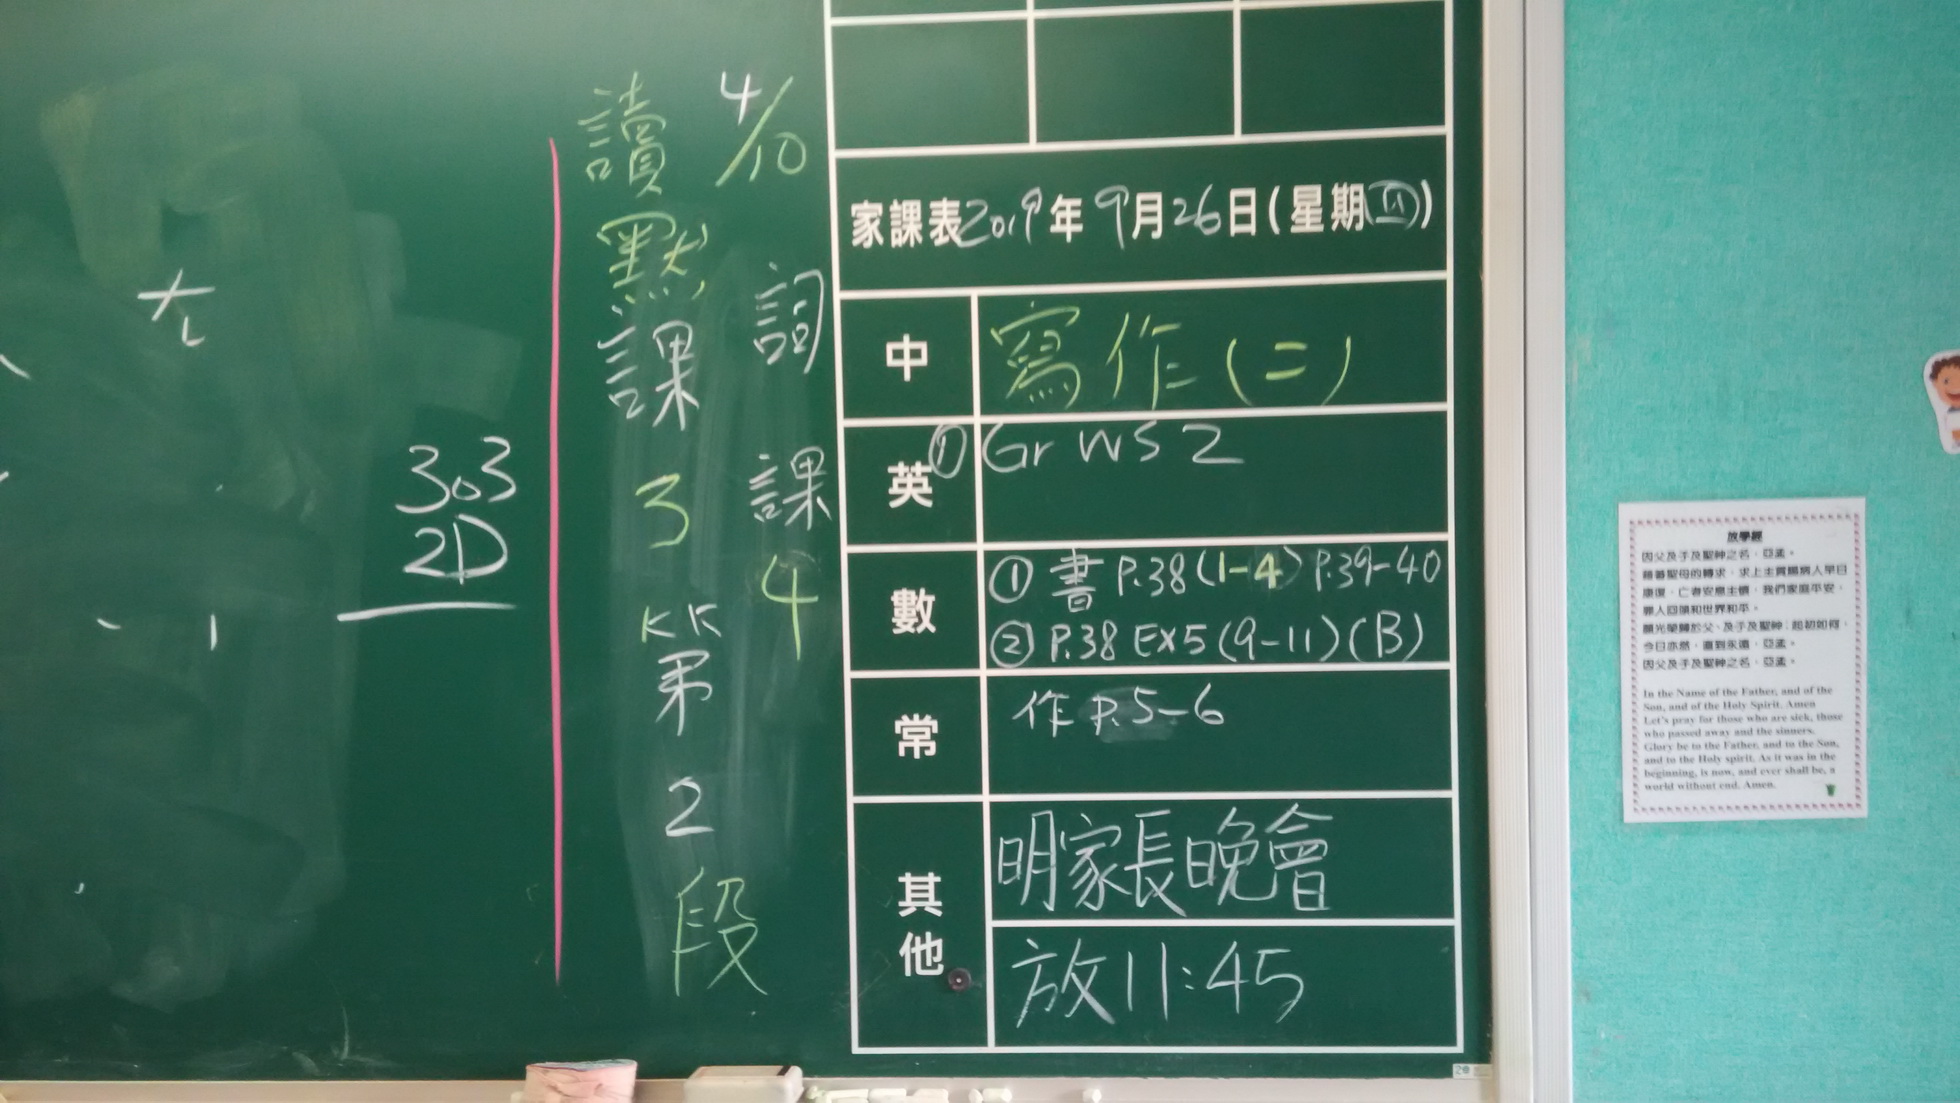 303
2D
讀默課3第2段
4/10
詞課4
家課表2019年9月26日(星期四)
中
寫作(二)
英
① Gr WS 2
數
① 書 P.38(1-4) P.39-40
② P.38 EX5(9-11)(B)
常
作 P.5-6
其他
明家長晚會
放11:45
放學經
因父及子及聖神之名，亞孟。
藉著聖母的轉求，求上主賞賜病人早日
康復，亡者安息主懷，我們家庭平安，
罪人回頭和世界和平。
願光榮歸於父、及子及聖神；起初如何，
今日亦然，直到永遠，亞孟。
因父及子及聖神之名，亞孟。
In the Name of the Father, and of the
Son, and of the Holy Spirit. Amen
Let's pray for those who are sick, those
who passed away and the sinners.
Glory be to the Father, and to the Son,
and to the Holy spirit. As it was in the
beginning, is now, and ever shall be, a
world without end. Amen.